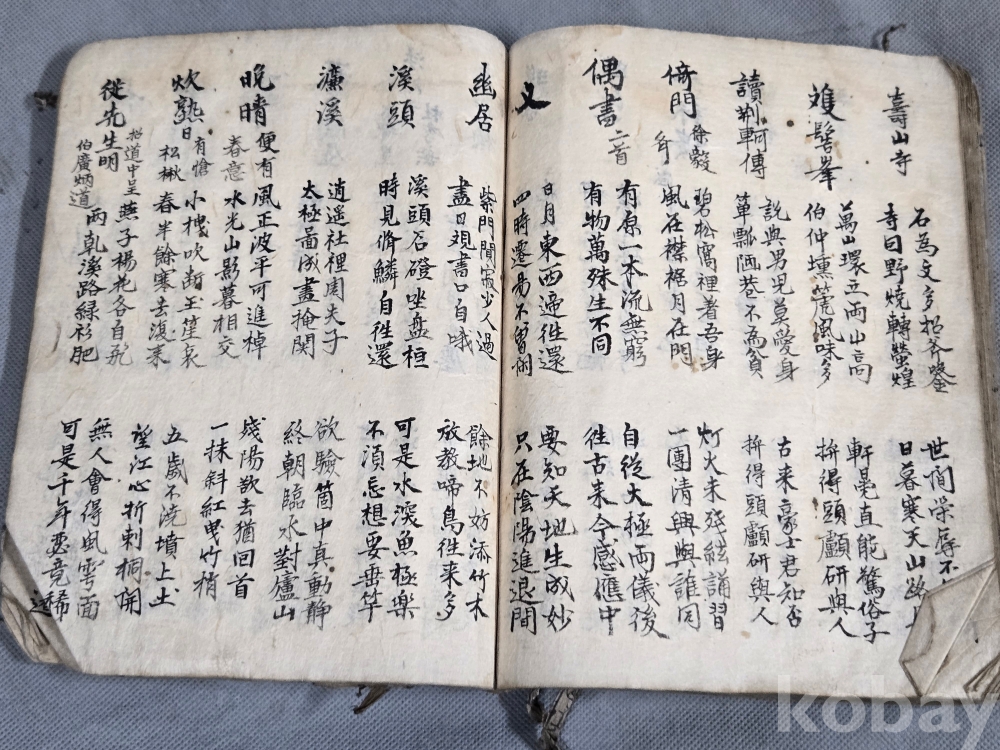 壽山寺
石為文多招斧鑿
寺因野燒轉煢煌
世間榮辱不
日暮寒天山路
雙髻峯
萬山環立兩山高
伯仲壎篪風味多
軒冕直能驚俗子
拚得頭顱研與人
讀荊軻傳
說與男兒莫愛身
簞瓢陋巷不為貧
古来豪士君知否
拚得頭顱研與人
倚門 徐毅
碧松窩裡著吾身
風在襟裾月在門
灯火未殘絃誦習
一團清興與誰同
偶書 二首
有原一本流無窮
有物萬殊生不同
自從太極兩儀後
往古来今感應中
又
日月東西遞往還
四時遷易不曾閑
要知天地生成妙
只在陰陽進退間
幽居
柴門閴寂少人過
盡日覌書口自哦
餘地不妨添竹木
放教啼鳥往来多
溪頭
溪頭石磴坐盤桓
時見脩鱗自往還
可是水深魚極樂
不湏忘想要垂竿
濂溪
逍遥社裡周夫子
太極啚成晝掩関
欲驗箇中真動靜
終朝臨水對廬山
晚晴 便有春意
風正波平可進棹
水光山影暮相交
殘陽欲去猶回首
一抹斜紅曳竹梢
炊熟日 有愴松楸
小棧吹斷玉笙哀
春半餘寒去復来
五歲不澆墳上土
望江心折刺桐開
從先生明招道中呈伯廣炳道
燕子楊花各自飛
兩乾溪路緑衫肥
無人會得風雩面
可是千年瑟竟稀
kobay